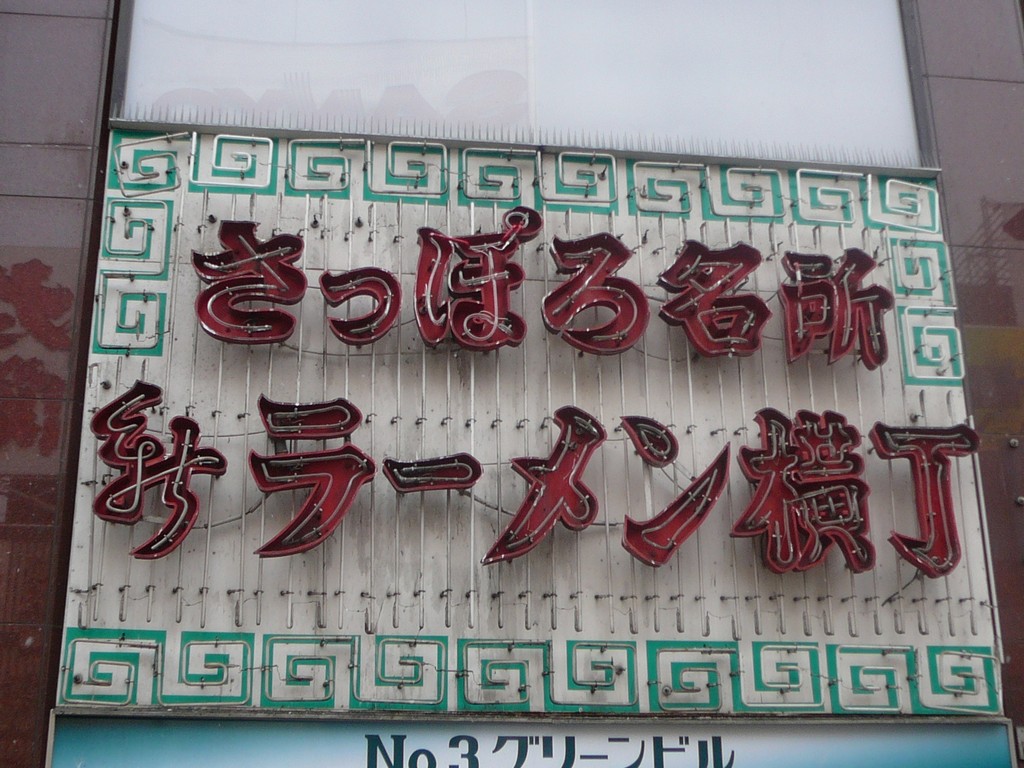 さっぽろ名所
新ラーメン横丁
No.3グリーンビル